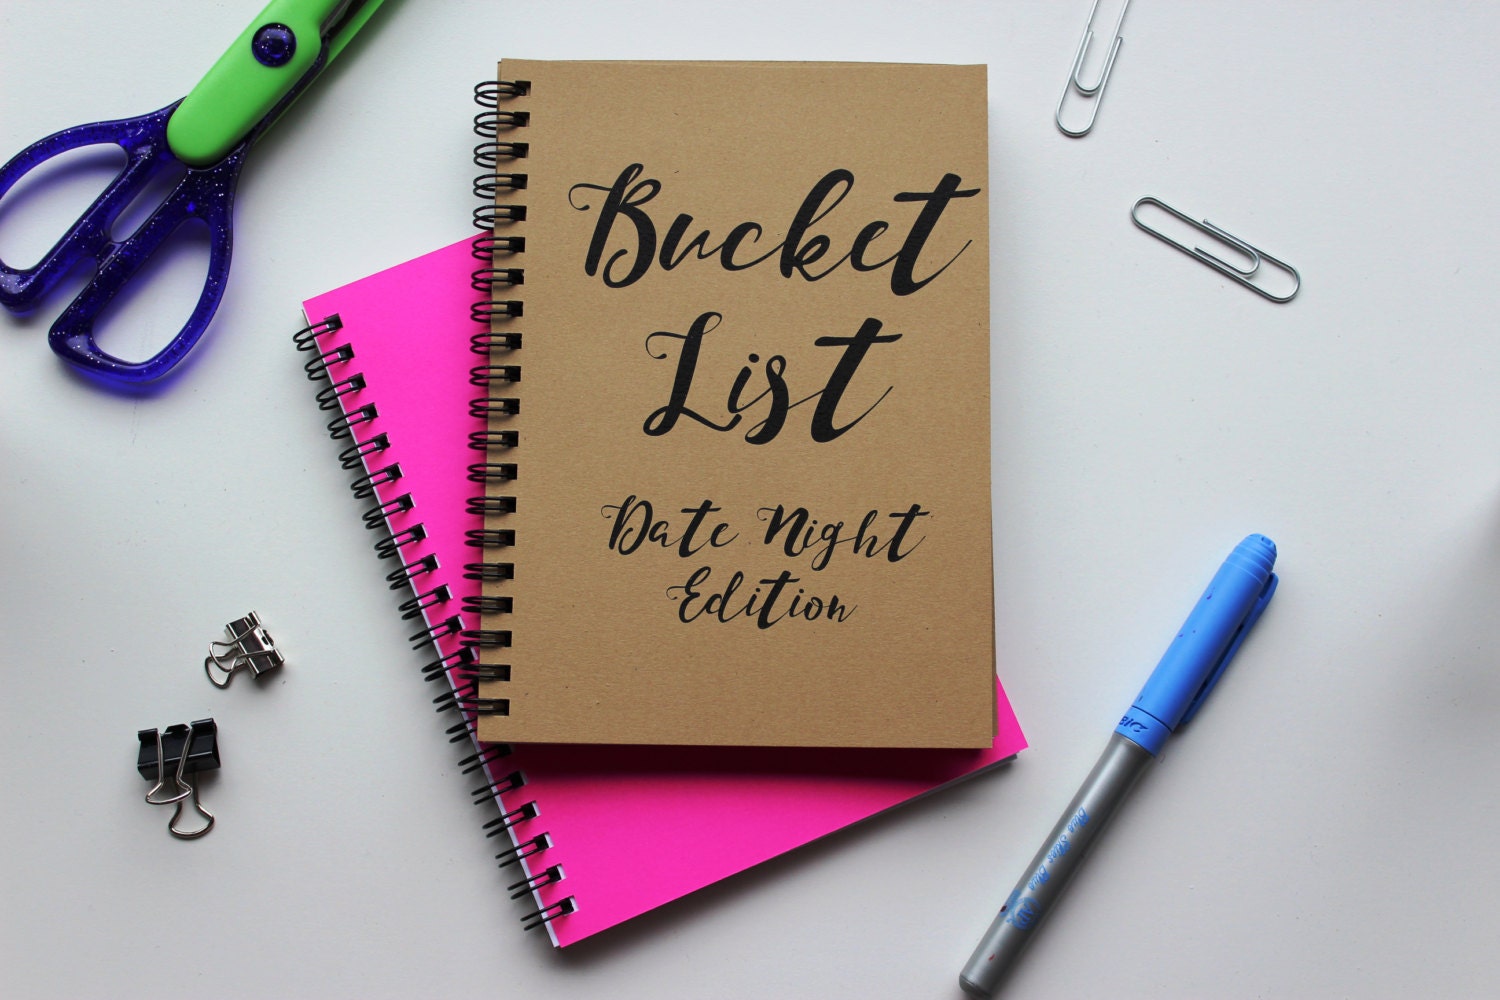 Bucket
List
Date Night
Edition
BIC